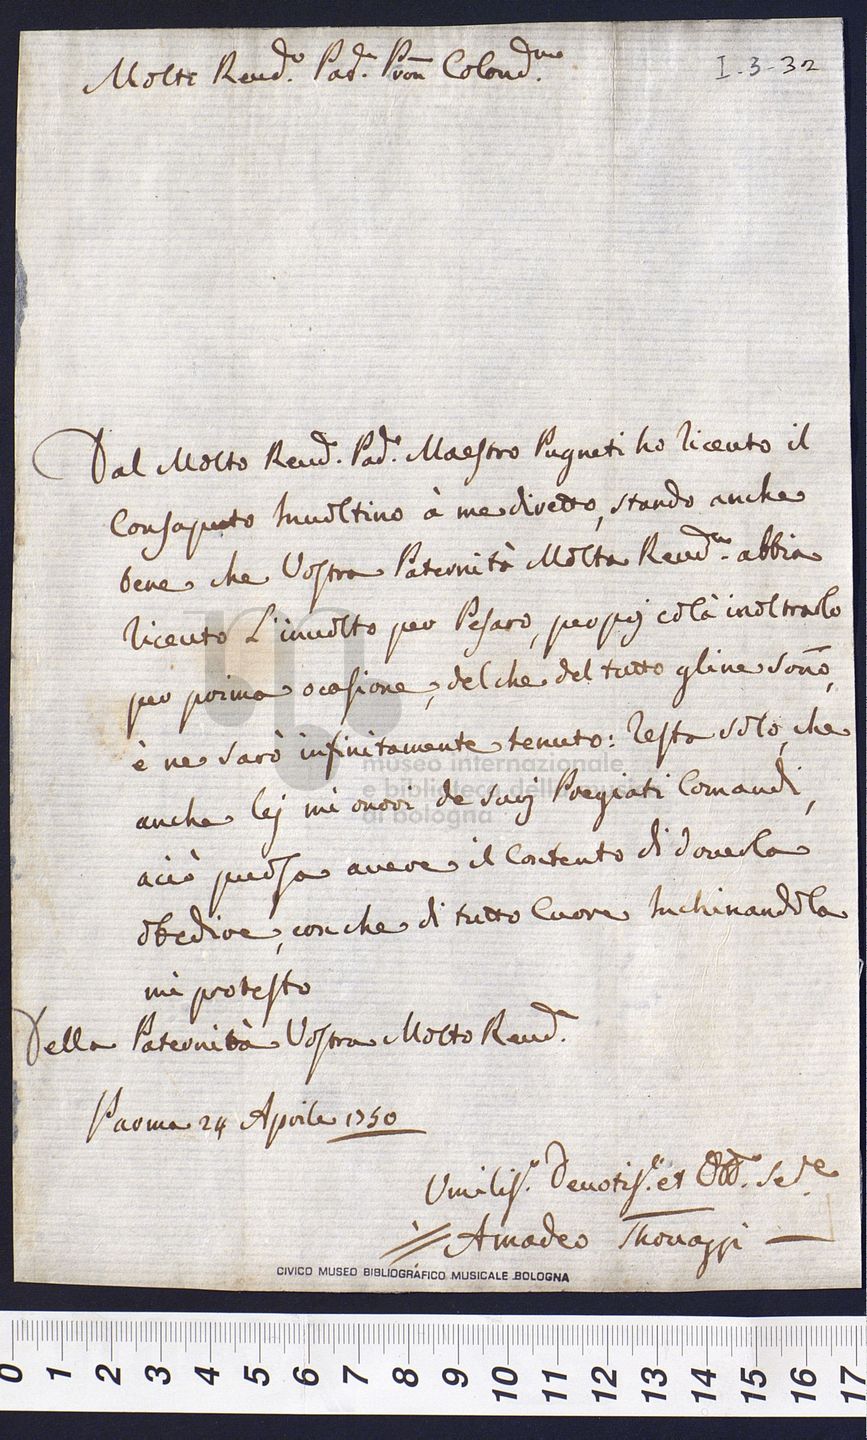 Molto Reud.o Pad.e Pron Colend.mo
I.3-32
Dal Molto Reud. Pad.e Maestro Pugneti ho riceuto il
Consaputo Inuoltino à me diretto, stando anche
bene che Vostra Paternità Molto Reud.a abbia
riceuto L'inuolto per Pesaro, per poj colà inoltrarlo
per prima ocasione, del che del tutto gline sono,
è ne sarò infinitamente tenuto: resta solo, che
anche lej mi onori de suoj Pregiati Comandi,
aciò possa avere il Contento di douerla
obedire, con che di tutto Cuore Inchinandola
mi protesto
Della Paternità Vostra Molto Reud.a
Parma 24 Aprile 1750
Umilis.o Deuotis.o et Obb.o Se.re
Amadeo
museo internazionale
e biblioteca della
di bologna
CIVICO MUSEO BIBLIOGRAFICO MUSICALE BOLOGNA
0 1 2 3 4 5 6 7 8 9 10 11 12 13 14 15 16 17